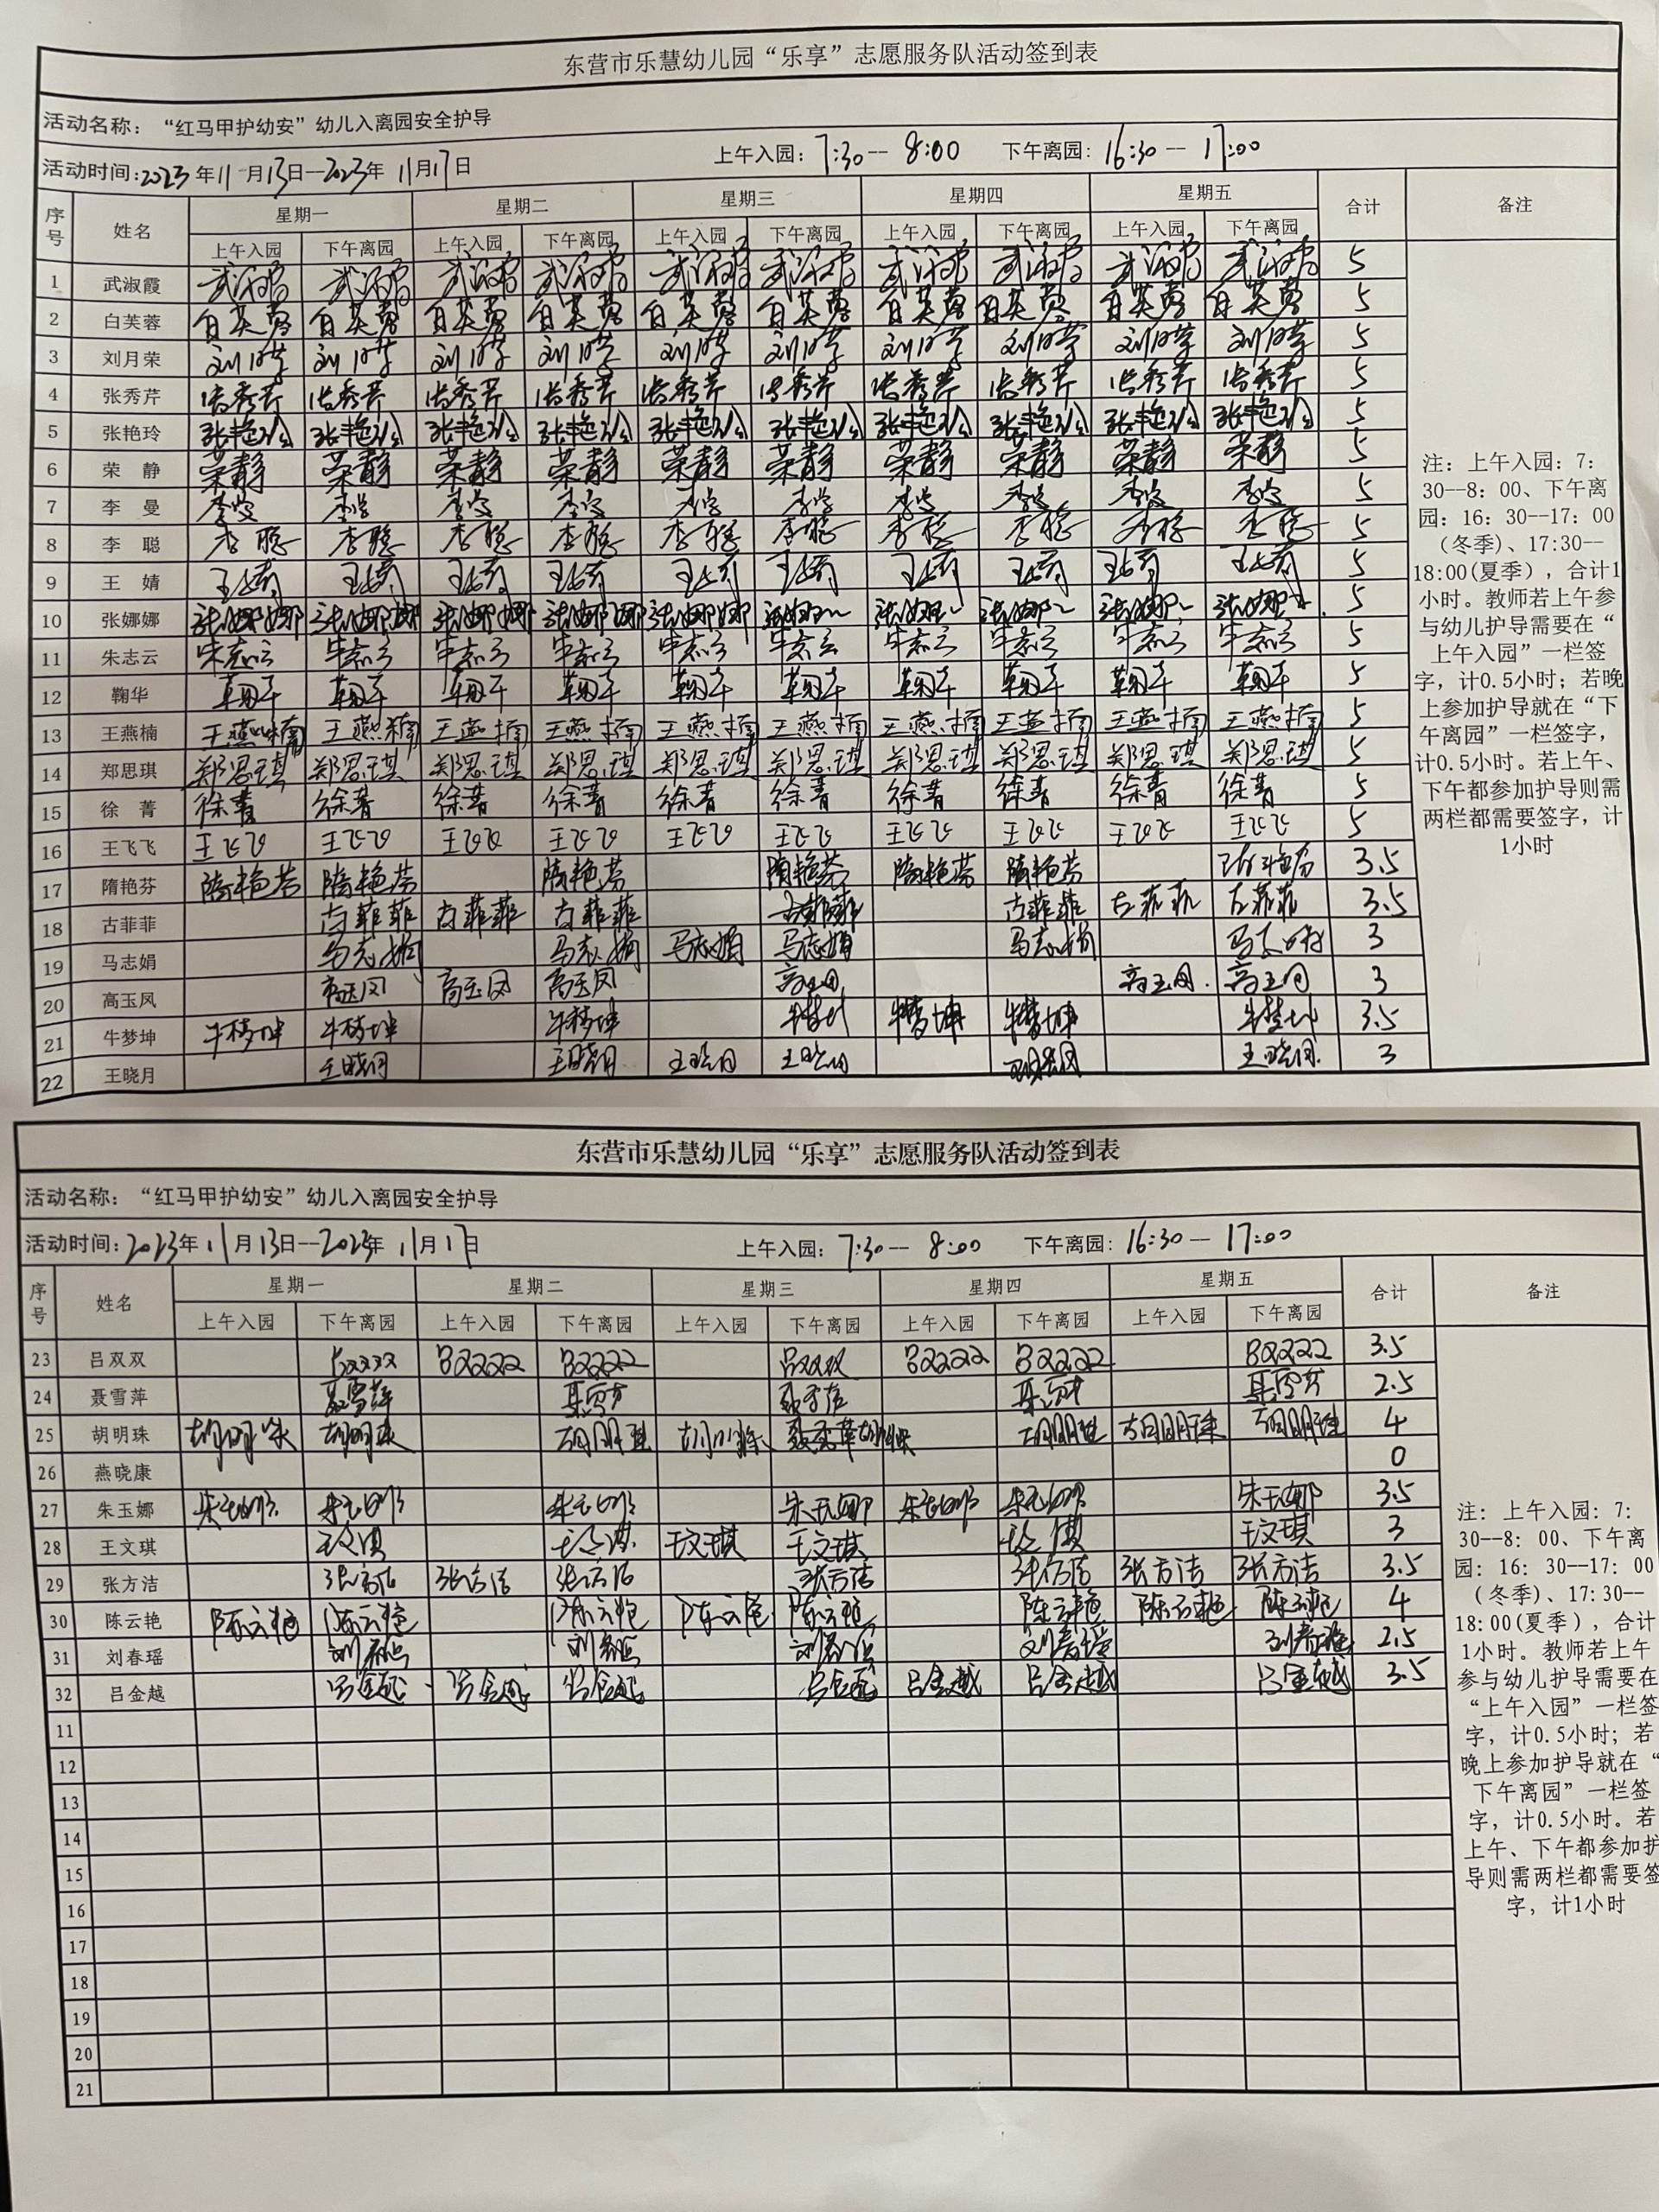 东营市乐慧幼儿园“乐享”志愿服务队活动签到表
活动名称：“红马甲护幼安”幼儿入离园安全护导
活动时间：2023年11月13日--2023年11月17日 上午入园：7:30--8:00 下午离园：16:30--17:00
序号 姓名 星期一 星期二 星期三 星期四 星期五 合计 备注
上午入园 下午离园 上午入园 下午离园 上午入园 下午离园 上午入园 下午离园 上午入园 下午离园
1 武淑霞 武淑霞 武淑霞 武淑霞 武淑霞 武淑霞 武淑霞 武淑霞 武淑霞 武淑霞 武淑霞 5
2 白芙蓉 白芙蓉 白芙蓉 白芙蓉 白芙蓉 白芙蓉 白芙蓉 白芙蓉 白芙蓉 白芙蓉 白芙蓉 5
3 刘月荣 刘月荣 刘月荣 刘月荣 刘月荣 刘月荣 刘月荣 刘月荣 刘月荣 刘月荣 刘月荣 5
4 张秀芹 张秀芹 张秀芹 张秀芹 张秀芹 张秀芹 张秀芹 张秀芹 张秀芹 张秀芹 张秀芹 5
5 张艳玲 张艳玲 张艳玲 张艳玲 张艳玲 张艳玲 张艳玲 张艳玲 张艳玲 张艳玲 张艳玲 5
6 荣 静 荣静 荣静 荣静 荣静 荣静 荣静 荣静 荣静 荣静 荣静 5
7 李 曼 李曼 李曼 李曼 李曼 李曼 李曼 李曼 李曼 李曼 李曼 5
8 李 聪 李聪 李聪 李聪 李聪 李聪 李聪 李聪 李聪 李聪 李聪 5
9 王 婧 王婧 王婧 王婧 王婧 王婧 王婧 王婧 王婧 王婧 王婧 5
10 张娜娜 张娜娜 张娜娜 张娜娜 张娜娜 张娜娜 张娜娜 张娜娜 张娜娜 张娜娜 张娜娜 5
11 朱志云 朱志云 朱志云 朱志云 朱志云 朱志云 朱志云 朱志云 朱志云 朱志云 朱志云 5
12 鞠华 鞠华 鞠华 鞠华 鞠华 鞠华 鞠华 鞠华 鞠华 鞠华 鞠华 5
13 王燕楠 王燕楠 王燕楠 王燕楠 王燕楠 王燕楠 王燕楠 王燕楠 王燕楠 王燕楠 王燕楠 5
14 郑思琪 郑思琪 郑思琪 郑思琪 郑思琪 郑思琪 郑思琪 郑思琪 郑思琪 郑思琪 郑思琪 5
15 徐 菁 徐菁 徐菁 徐菁 徐菁 徐菁 徐菁 徐菁 徐菁 徐菁 徐菁 5
16 王飞飞 王飞飞 王飞飞 王飞飞 王飞飞 王飞飞 王飞飞 王飞飞 王飞飞 王飞飞 王飞飞 5
17 隋艳芬 隋艳芬 隋艳芬 隋艳芬 隋艳芬 隋艳芬 隋艳芬 隋艳芬 3.5
18 古菲菲 古菲菲 古菲菲 古菲菲 古菲菲 古菲菲 古菲菲 古菲菲 3.5
19 马志娟 马志娟 马志娟 马志娟 马志娟 马志娟 马志娟 3
20 高玉凤 高玉凤 高玉凤 高玉凤 高玉凤 高玉凤 高玉凤 3
21 牛梦坤 牛梦坤 牛梦坤 牛梦坤 牛梦坤 牛梦坤 牛梦坤 牛梦坤 3.5
22 王晓月 王晓月 王晓月 王晓月 王晓月 王晓月 王晓月 3
注：上午入园：7：
30--8：00、下午离
园：16：30--17：00
（冬季）、17:30--
18:00(夏季），合计1
小时。教师若上午参
与幼儿护导需要在“
上午入园”一栏签
字，计0.5小时；若晚
上参加护导就在“下
午离园”一栏签字，
计0.5小时。若上午、
下午都参加护导则需
两栏都需要签字，计
1小时
东营市乐慧幼儿园“乐享”志愿服务队活动签到表
活动名称：“红马甲护幼安”幼儿入离园安全护导
活动时间：2023年11月13日--2023年11月17日 上午入园：7:30--8:00 下午离园：16:30--17:00
序号 姓名 星期一 星期二 星期三 星期四 星期五 合计 备注
上午入园 下午离园 上午入园 下午离园 上午入园 下午离园 上午入园 下午离园 上午入园 下午离园
23 吕双双 吕双双 吕双双 吕双双 吕双双 吕双双 吕双双 吕双双 3.5
24 聂雪萍 聂雪萍 聂雪萍 聂雪萍 聂雪萍 聂雪萍 2.5
25 胡明珠 胡明珠 胡明珠 胡明珠 胡明珠 胡明珠 胡明珠 胡明珠 胡明珠 4
26 燕晓康 0
27 朱玉娜 朱玉娜 朱玉娜 朱玉娜 朱玉娜 朱玉娜 朱玉娜 朱玉娜 3.5
28 王文琪 王文琪 王文琪 王文琪 王文琪 王文琪 王文琪 3
29 张方洁 张方洁 张方洁 张方洁 张方洁 张方洁 张方洁 张方洁 3.5
30 陈云艳 陈云艳 陈云艳 陈云艳 陈云艳 陈云艳 陈云艳 陈云艳 陈云艳 4
31 刘春瑶 刘春瑶 刘春瑶 刘春瑶 刘春瑶 刘春瑶 2.5
32 吕金越 吕金越 吕金越 吕金越 吕金越 吕金越 吕金越 吕金越 3.5
11
12
13
14
15
16
17
18
19
20
21
注：上午入园：7：
30--8：00、下午离
园：16：30--17：00
（冬季）、17:30--
18:00(夏季），合计
1小时。教师若上午
参与幼儿护导需要在
“上午入园”一栏签
字，计0.5小时；若
晚上参加护导就在“
下午离园”一栏签
字，计0.5小时。若
上午、下午都参加护
导则需两栏都需要签
字，计1小时